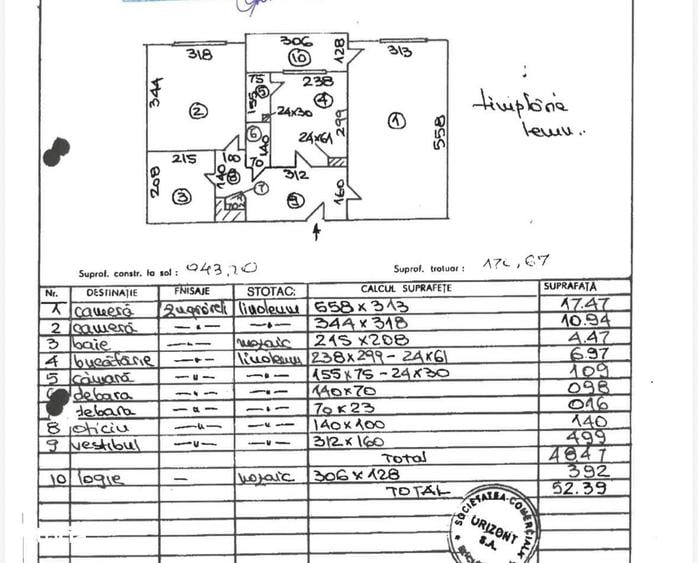 318
306
128
313
10
75
238
344
155
5
4
2
24x30
299
1
558
6
140
24x61
215
18
70
312
208
140
8
7
3
160
9
tîmplărie
lemn..
Supraf. constr. la sol : 943,20
Supraf. trotuar :
Nr. DESTINAȚIE FNISAJE STOTAC: CALCUL SUPRAFEȚE SUPRAFAȚĂ
1 cameră zugrăveli linoleum 558 x 313 17.47
2 cameră —"— —"— 344 x 318 10.94
3 baie —"— mozaic 215 x 208 4.47
4 bucătărie —"— linoleum 238 x 299 - 24 x 61 6.97
5 cămară —"— —"— 155 x 75 - 24 x 30 109
debara —"— —"— 140 x 70 098
debara —"— —"— 70 x 23 016
8 oficiu —"— —"— 140 x 100 140
9 vestibul —"— —"— 312 x 160 499
Total 4847
10 logie — mozaic 306 x 128 392
TOTAL 52.39
SOCIETATEA COMERCIALĂ
URIZONT
S.A.